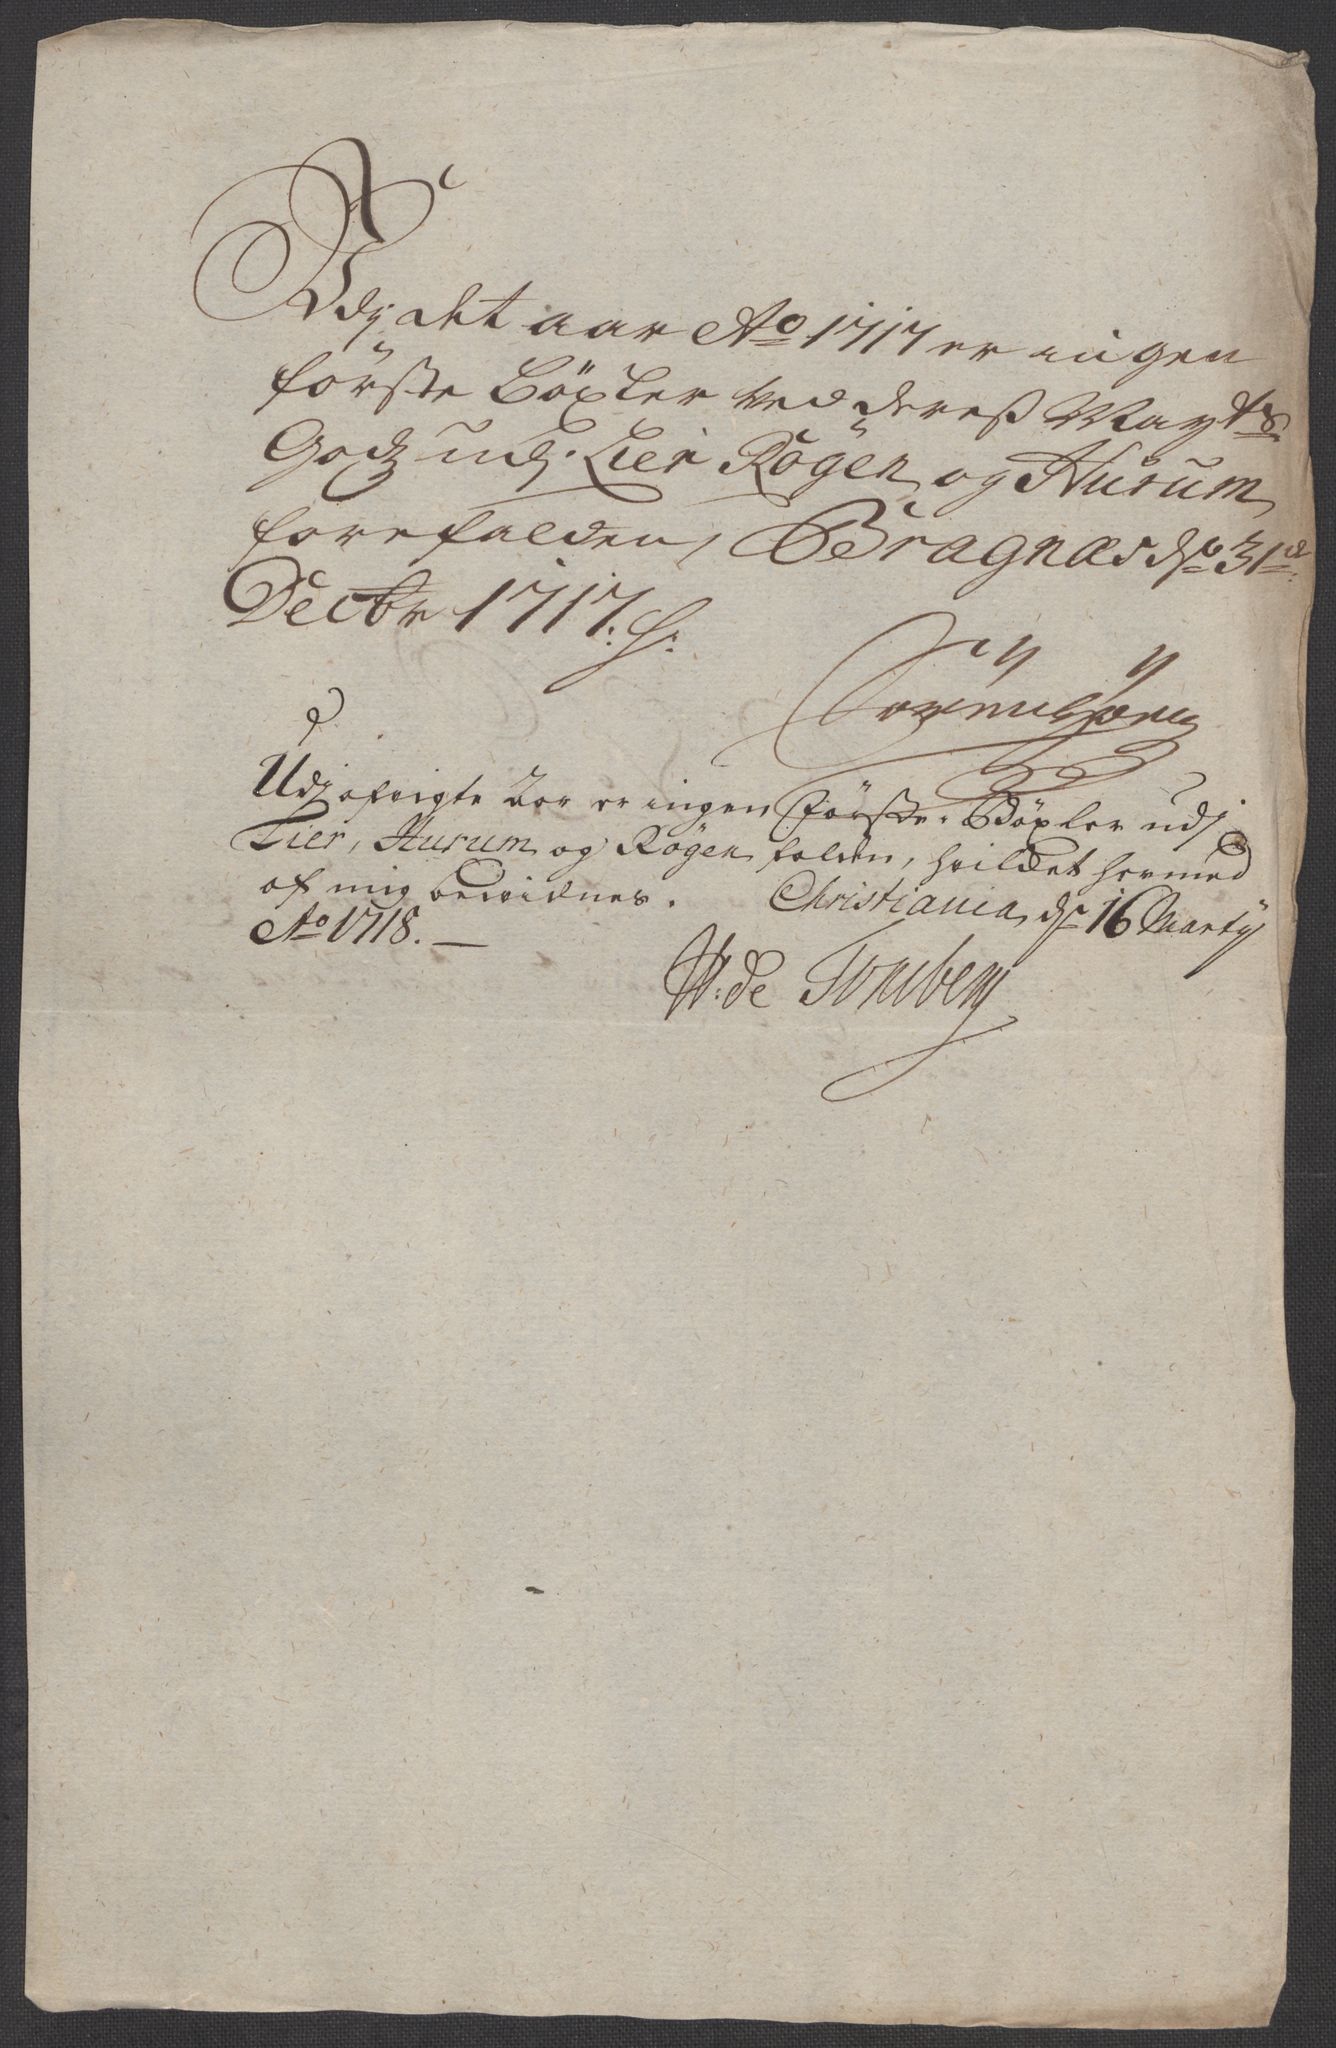 Udj det aar Ao 1717 er ingen
förste Böxler ved dereß Mayts
Godz udj Lier Rögen og Hurum
forefalden, Bragnæs dn 31d
Decbr 1717.
Udj ofrigte Aar er ingen Förste-Böxler udj
Lier, Hurum og Rögen falden, hvilcket hermed
af mig bevidnes. Christiania dn 16 Marty
Ao 1718.
W: de Tonsberg